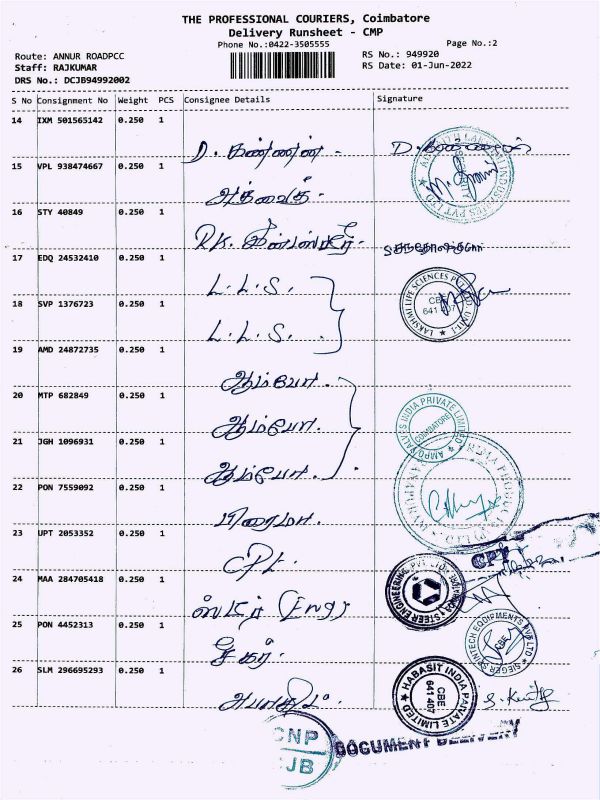 THE PROFESSIONAL COURIERS, Coimbatore
Delivery Runsheet - CMP
Phone No.:0422-3505555
Page No.:2
Route: ANNUR ROADPCC
RS No.: 949920
Staff: RAJKUMAR
RS Date: 01-Jun-2022
DRS No.: DCJB94992002
S No Consignment No Weight PCS Consignee Details Signature
14 IXM 501565142 0.250 1
D. கண்ணன்
15 VPL 938474667 0.250 1
16 STY 40849 0.250 1
RK.
17 EDQ 24532410 0.250 1
L.L.S.
LAKSHMI LIFE SCIENCES PVT LTD UNIT-I
CBE
641 407
18 SVP 1376723 0.250 1
L.L.S.
19 AMD 24872735 0.250 1
ஆம்போ.
20 MTP 682849 0.250 1
ஆம்போ.
AMPO VALVES INDIA PRIVATE LIMITED
COIMBATORE
21 JGH 1096931 0.250 1
ஆம்போ.
22 PON 7559092 0.250 1
பிரைமா.
23 UPT 2053352 0.250 1
CPT.
CPT
24 MAA 284705418 0.250 1
STEER ENGINEERING PVT. LTD.
25 PON 4452313 0.250 1
SIEGER SPINTECH EQUIPMENTS PVT LTD
CBE
26 SLM 296695293 0.250 1
HABASIT INDIA PRIVATE LIMITED
CBE
641 407
CNP
JB
DOCUMENT DELIVERY